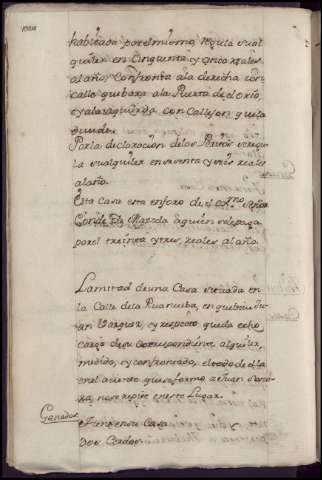 habitada por el mismo, regula su al
quiler en Cinquenta, y cinco reales
al año, Confronta a la derecha con
calle que baxa a la Puerta de el rio,
y a la izquierda con Callejon que la
divide.
Por la declaracion de los Peritos se regu
la su alquiler en sesenta y tres reales
al año.
Esta Casa esta en foro de el Señor
Conde de Mazeda a quien se le paga
por el treinta y tres reales al año.
La mitad de una Casa situada en
la Calle de la Rua nueba, en que bive Ju
an Vazquez, y respecto queda echo
cargo de su correspondiente alquiler,
medido, y confrontado, el todo de ella
en el asiento que se formo a Juan
no se repite en este Lugar.
Ganados
Tiene en su Casa
Dos Cerdos.